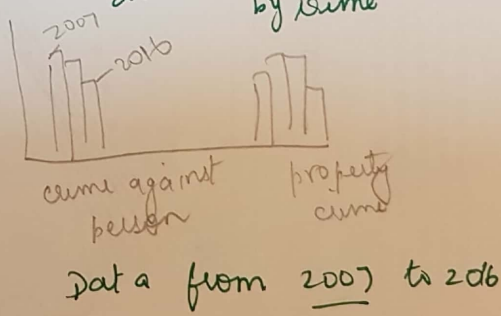 by crime
2007
2016
crime against
person
property
crime
Data from 2007 to 2016